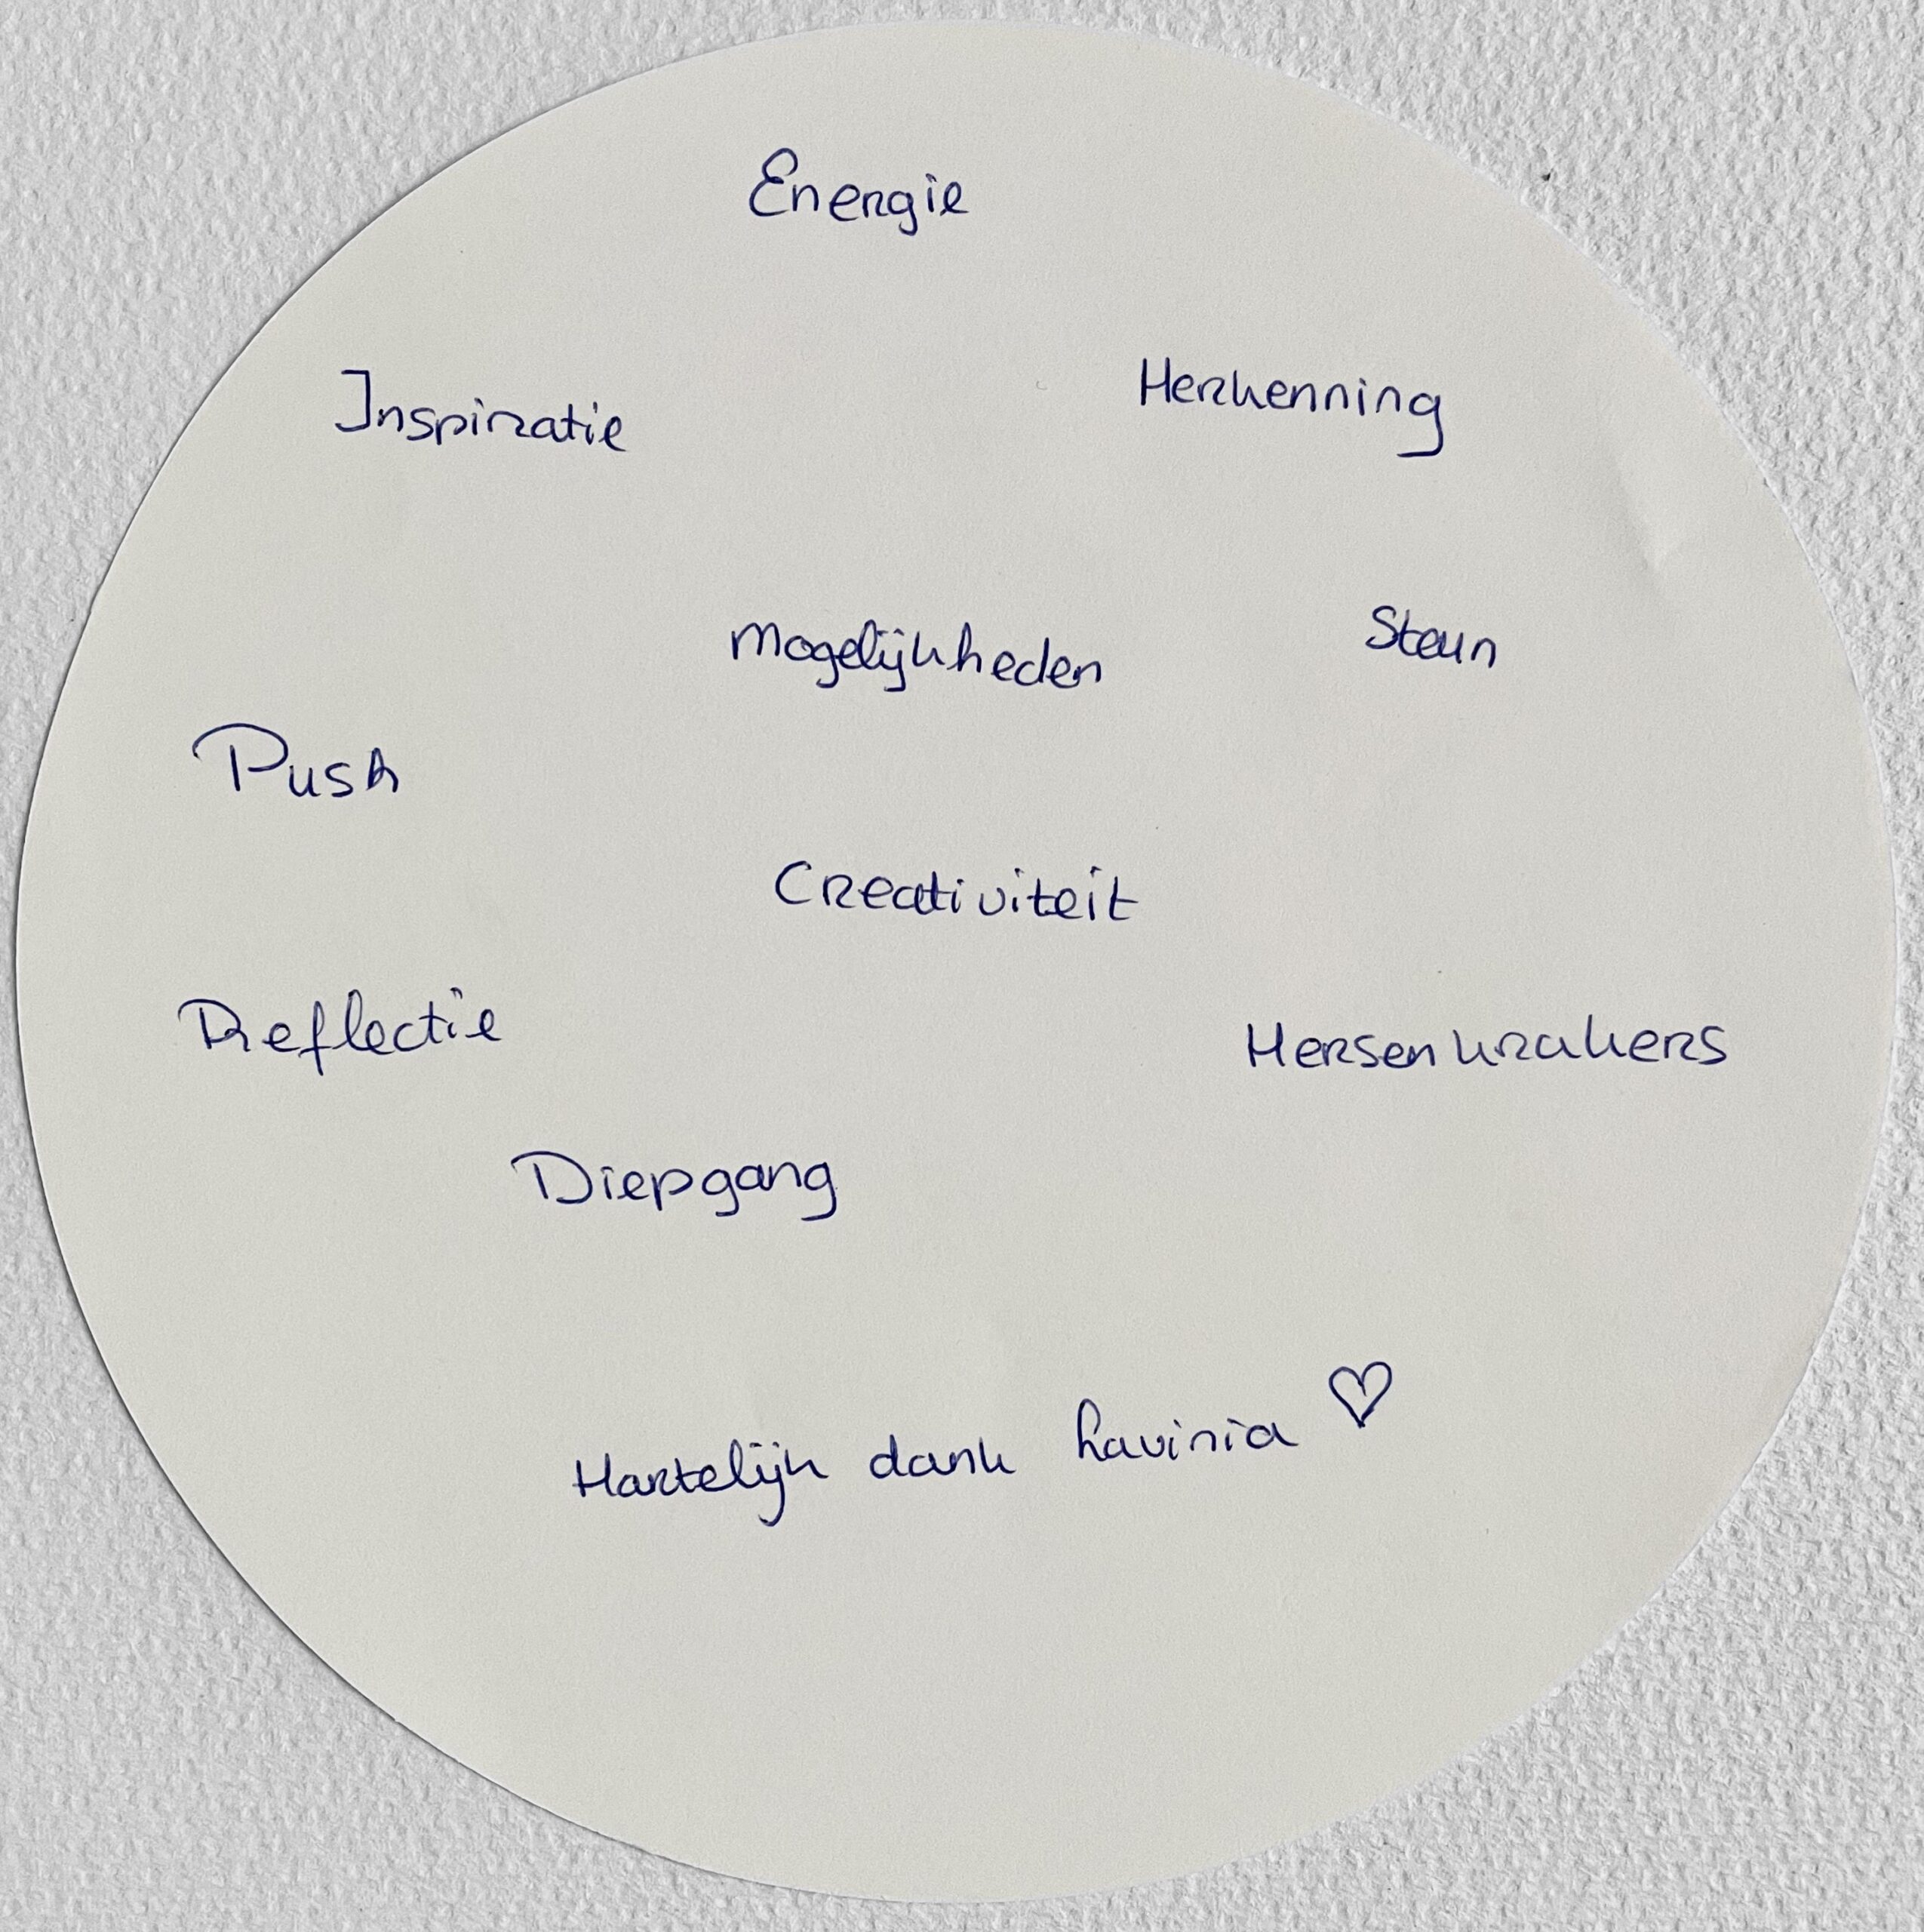 Energie
Inspiratie
Herkenning
Mogelijkheden
Steun
Push
Creativiteit
Reflectie
Hersenkrakers
Diepgang
Hartelijk dank Lavinia ♡